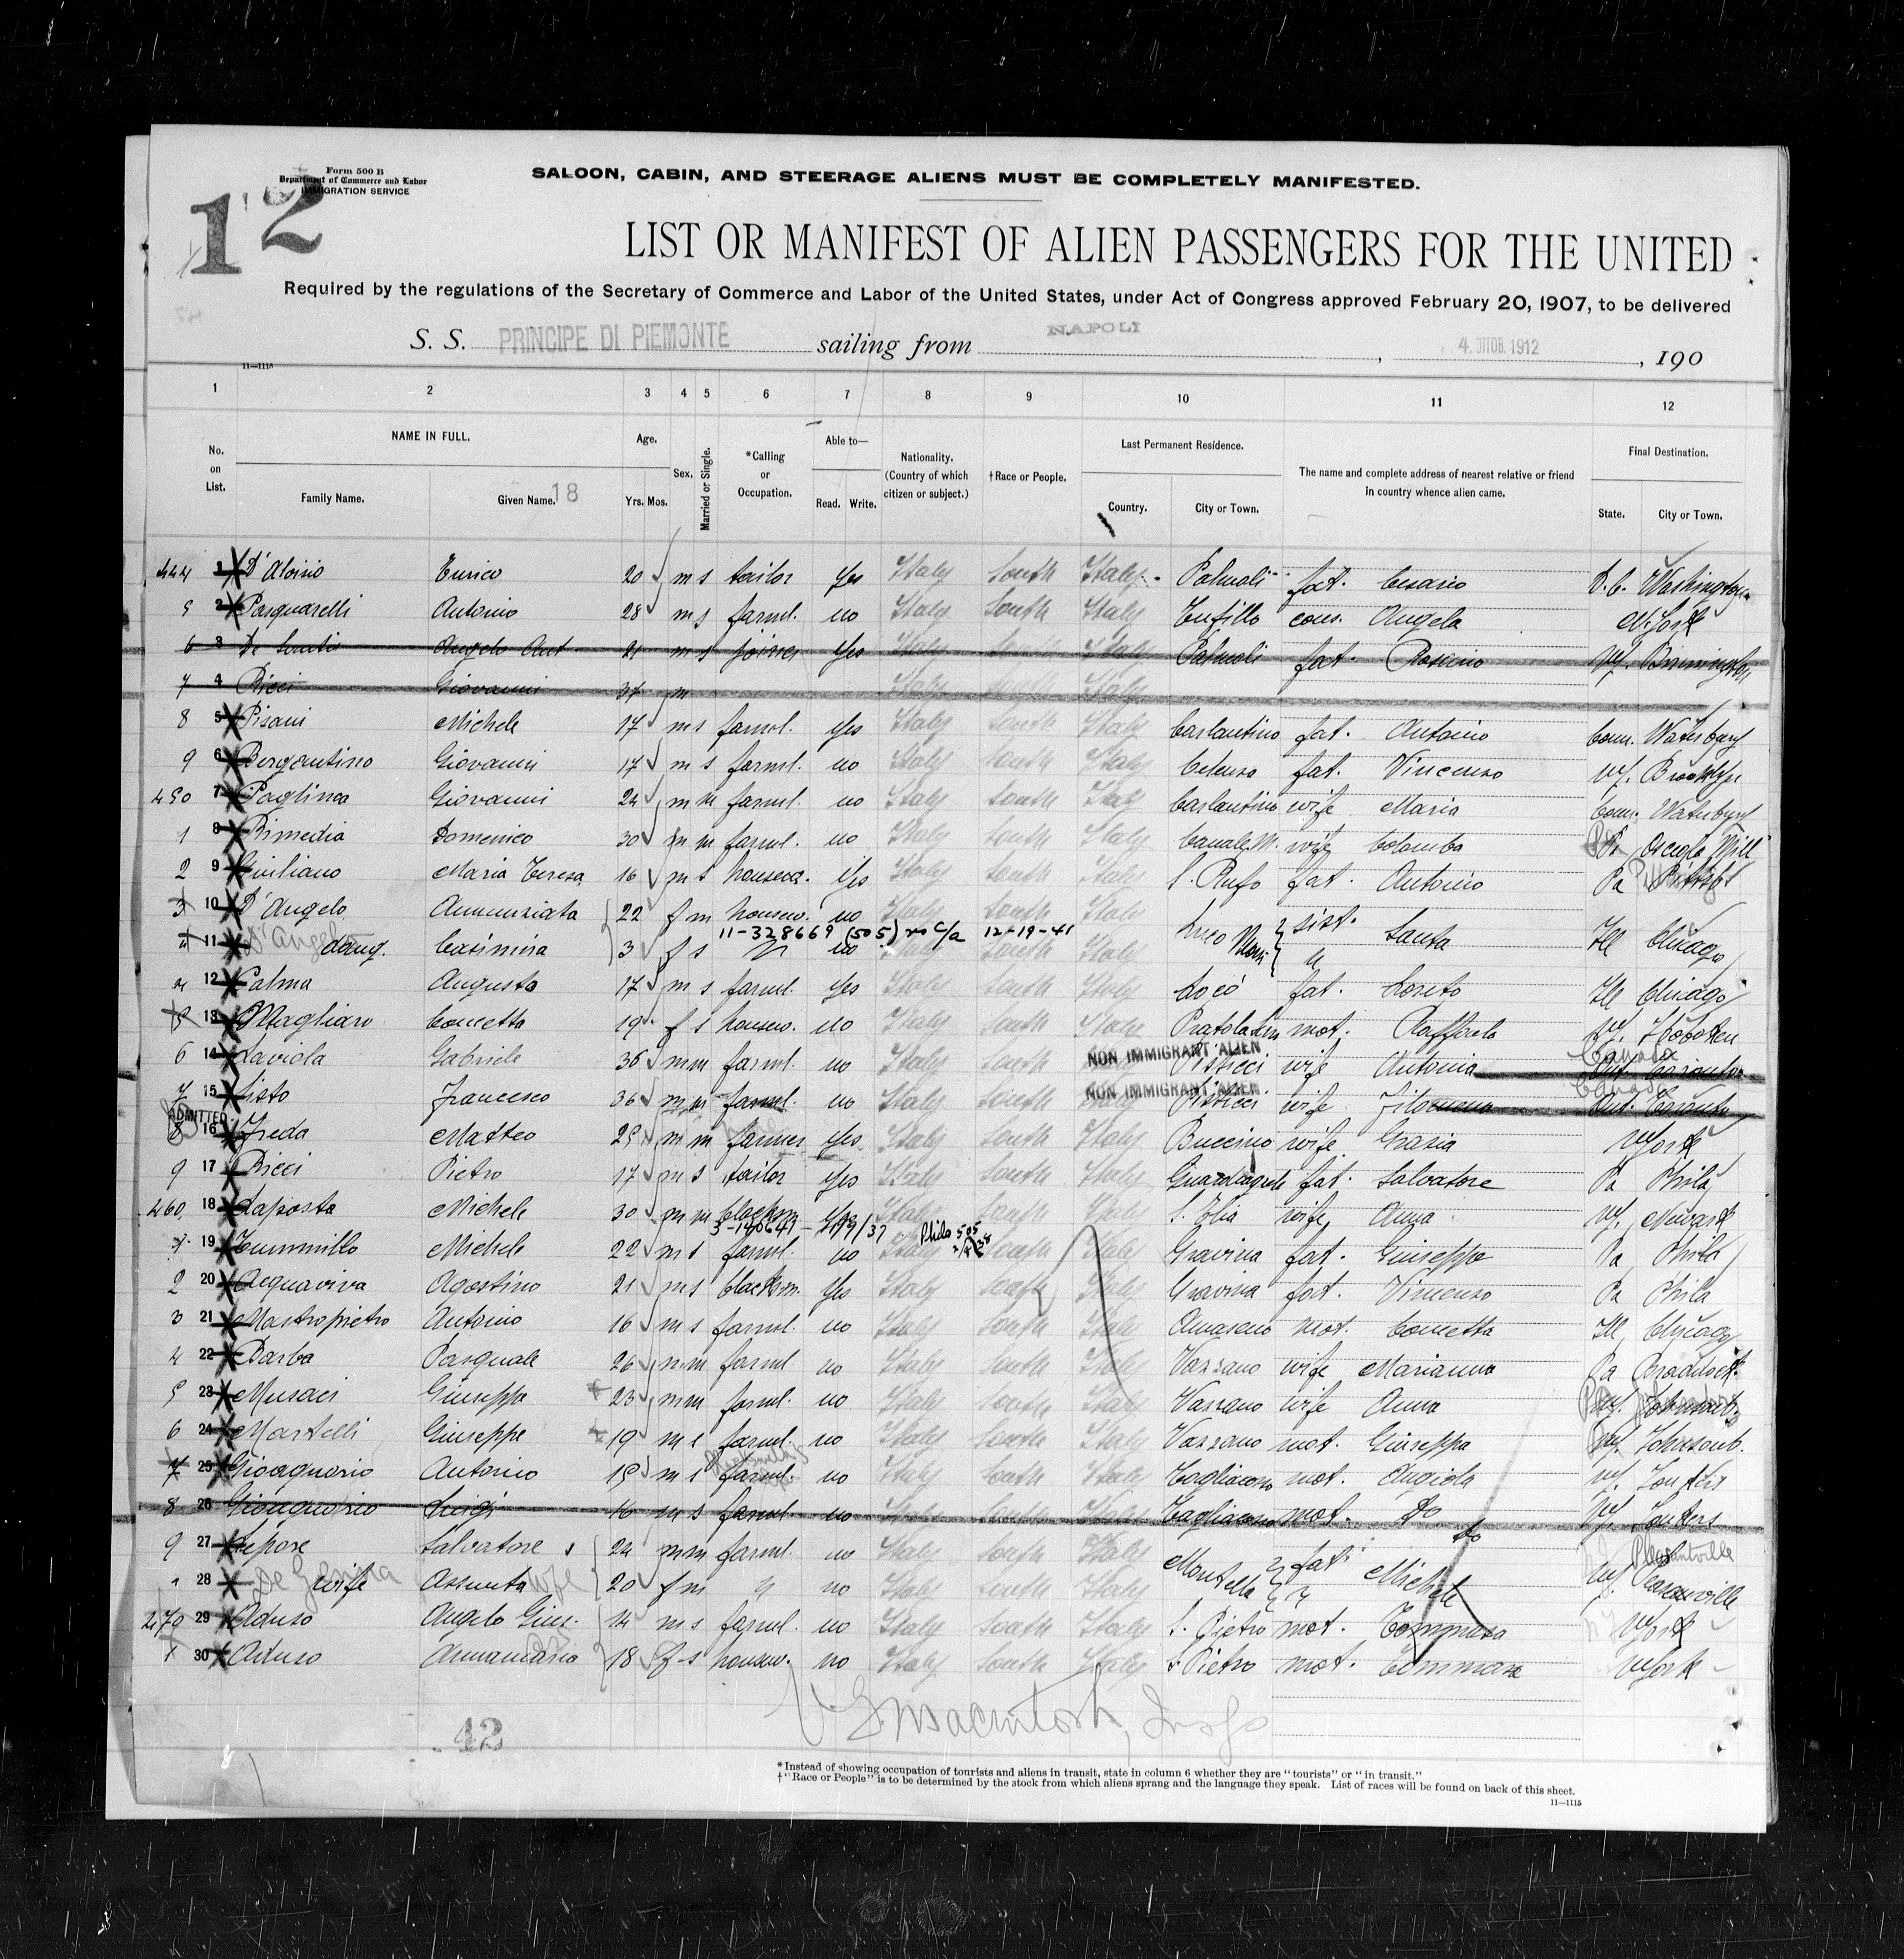 Form 500 B
Department of Commerce and Labor
IMMIGRATION SERVICE
12
SALOON, CABIN, AND STEERAGE ALIENS MUST BE COMPLETELY MANIFESTED.
LIST OR MANIFEST OF ALIEN PASSENGERS FOR THE UNITED
Required by the regulations of the Secretary of Commerce and Labor of the United States, under Act of Congress approved February 20, 1907, to be delivered
S. S. PRINCIPE DI PIEMONTE sailing from NAPOLI, 4. OTTOB. 1912, 190
11—1115
1 2 3 4 5 6 7 8 9 10 11 12
No. on List. NAME IN FULL. Family Name. Given Name. 18 Age. Yrs. Mos. Sex. Married or Single. *Calling or Occupation. Able to— Read. Write. Nationality. (Country of which citizen or subject.) †Race or People. Last Permanent Residence. Country. City or Town. The name and complete address of nearest relative or friend in country whence alien came. Final Destination. State. City or Town.
444 1 D'Aloisio Enrico 20 m s tailor yes Italy South Italy Palmoli fat. Cesario D.C. Washington
5 2 Pasquarelli Antonio 28 m s farml. no Italy South Italy Tufillo cous. Angela N. York
6 3 Angelo Ant 21 m s joiner yes Italy Italy Palmoli fat.
7 4 Ricci Giovanni 37 m Italy South Italy
8 5 Pisani Michele 17 m s farml. yes Italy South Italy Carlantino fat. Antonio Conn. Waterbury
9 6 Bergantino Giovanni 17 m s farml. no Italy South Italy Celenza fat. Vincenzo NY. Brooklyn
450 7 Paglinca Giovanni 24 m m farml. no Italy South Italy Carlantino wife Maria Conn. Waterbury
1 8 Rimedia Domenico 30 m m farml. no Italy South Italy Canale M. wife Colomba Pa Osceola Mill
2 9 Giuliano Maria Teresa 16 m s housew. yes Italy South Italy S. Rufo fat. Antonio Pa
3 10 D'Angelo Annunziata 22 f m housew. no Italy South Italy Luco sist. Santa Ill Chicago
11-328669 (505) no c/a 12-19-41
11 D'Angelo daug. Casimira 3 f s no Italy South Italy
12 Palma Augusto 17 m s farml. yes Italy South Italy fat. Loreto Ill Chicago
5 13 Magliaro Concetta 19 f s housew. no Italy South Italy mot. Raffaela NY. Hoboken
6 14 Laviola Gabriele 36 m m farml. no Italy South NON IMMIGRANT ALIEN Pisticci wife Antonia Canada
7 15 Sisto Francesco 36 m m farml. no Italy South NON IMMIGRANT ALIEN Pisticci wife Filomena Canada
ADMITTED
8 16 Freda Matteo 25 m m farmer yes Italy South Italy Buccino wife Grazia N York
9 17 Ricci Pietro 17 m s tailor yes Italy South Italy Guardiagrele fat. Salvatore Pa Phila
460 18 Laposta Michele 30 m m blacksm. yes Italy South Italy S. Elia wife Anna NY. Newark
Phila 505
19 Tummillo Michele 22 m s farml. no Italy South Italy Gravina fat. Giuseppe Pa Phila
2 20 Acquaviva Agostino 21 m s blacksm. yes Italy South Italy Gravina fat. Vincenzo Pa Phila
3 21 Mastropietro Antonio 16 m s farml. no Italy South Italy Amaseno mot. Concetta Ill Chicago
4 22 Barba Pasquale 26 m m farml. no Italy South Italy Vazzano wife Marianna Pa Braddock
5 23 Musaci Giuseppe 23 m m farml. no Italy South Italy Vazzano wife Anna
6 24 Martelli Giuseppe 19 m s farml. no Italy South Italy Vazzano mot. Giuseppa Johnsonb.
7 25 Gioaquorio Antonio 15 m s farml. no Italy South Italy Tagliacozzo mot. Angiola NY.
8 26 Gioaquorio Luigi 16 m s farml. no Italy South Italy Tagliacozzo mot. do NY.
do
9 27 Lepore Salvatore 24 m m farml. no Italy South Italy Montella fat. Michele NY. Pleasantville
28 wife Assunta 20 f m " no Italy South Italy
470 29 Aduso Angelo Gius. 14 m s farml. no Italy South Italy S. Pietro mot. Tommasa N York
1 30 Aduso Annamaria 18 f s housew. no Italy South Italy S Pietro mot. Tommasa N York
Macintosh, Insp
42
*Instead of showing occupation of tourists and aliens in transit, state in column 6 whether they are "tourists" or "in transit."
†"Race or People" is to be determined by the stock from which aliens sprang and the language they speak. List of races will be found on back of this sheet.
11—1115